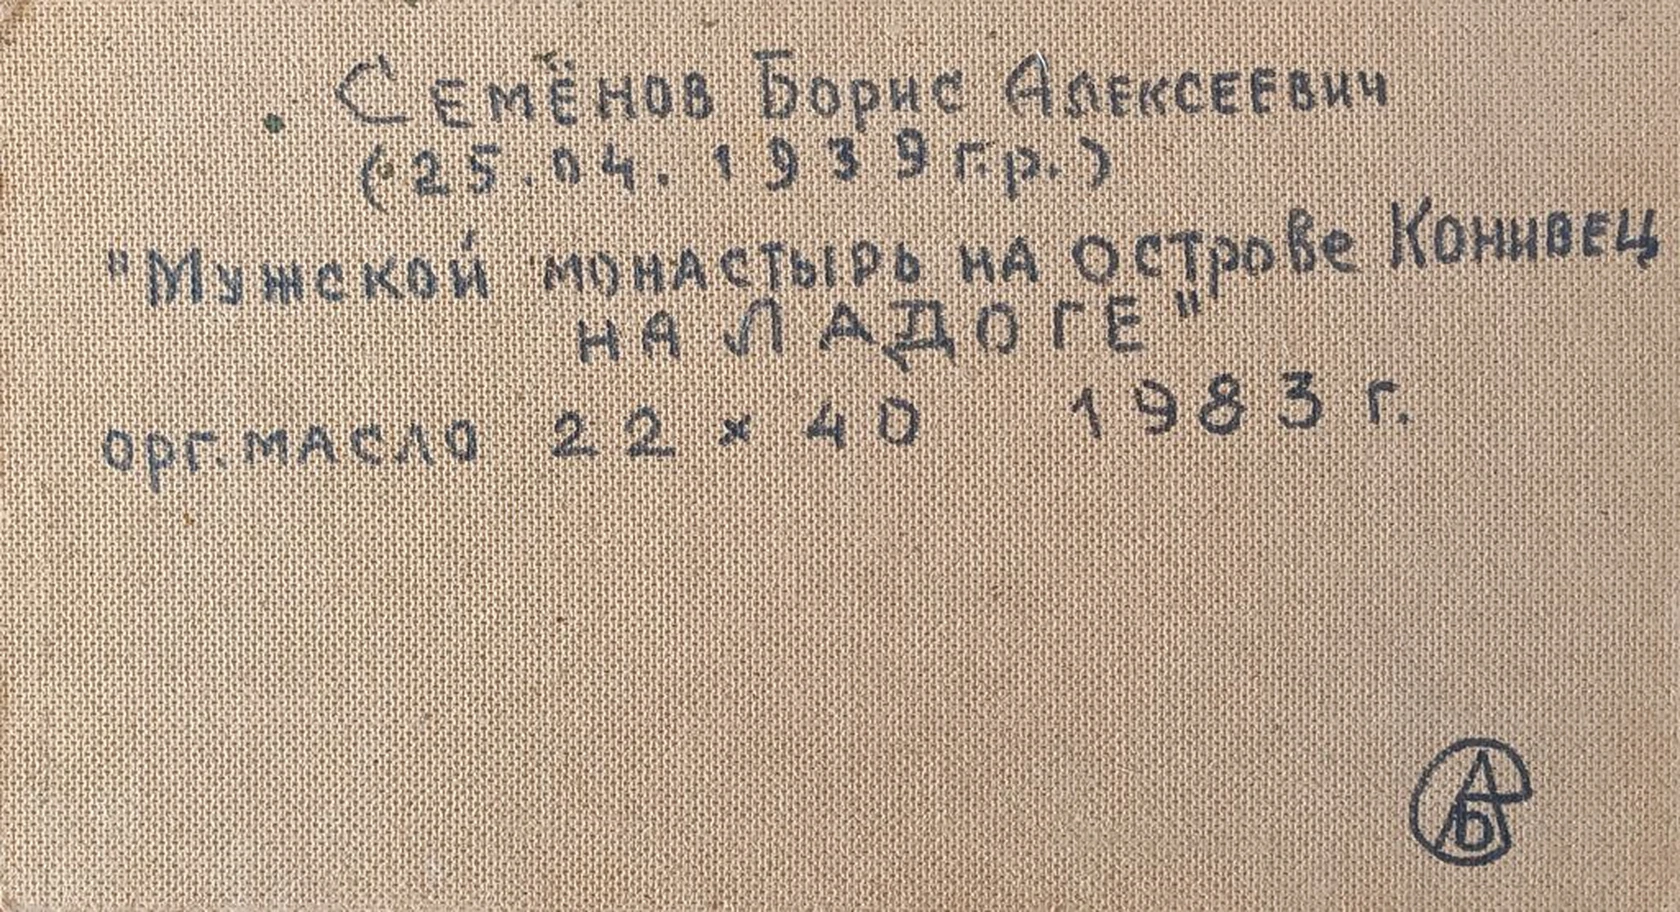 Семёнов Борис Алексеевич
(25.04.1939 г.р.)
"Мужской монастырь на острове Конивец
на Ладоге"
орг. масло 22 x 40 1983 г.
САБ